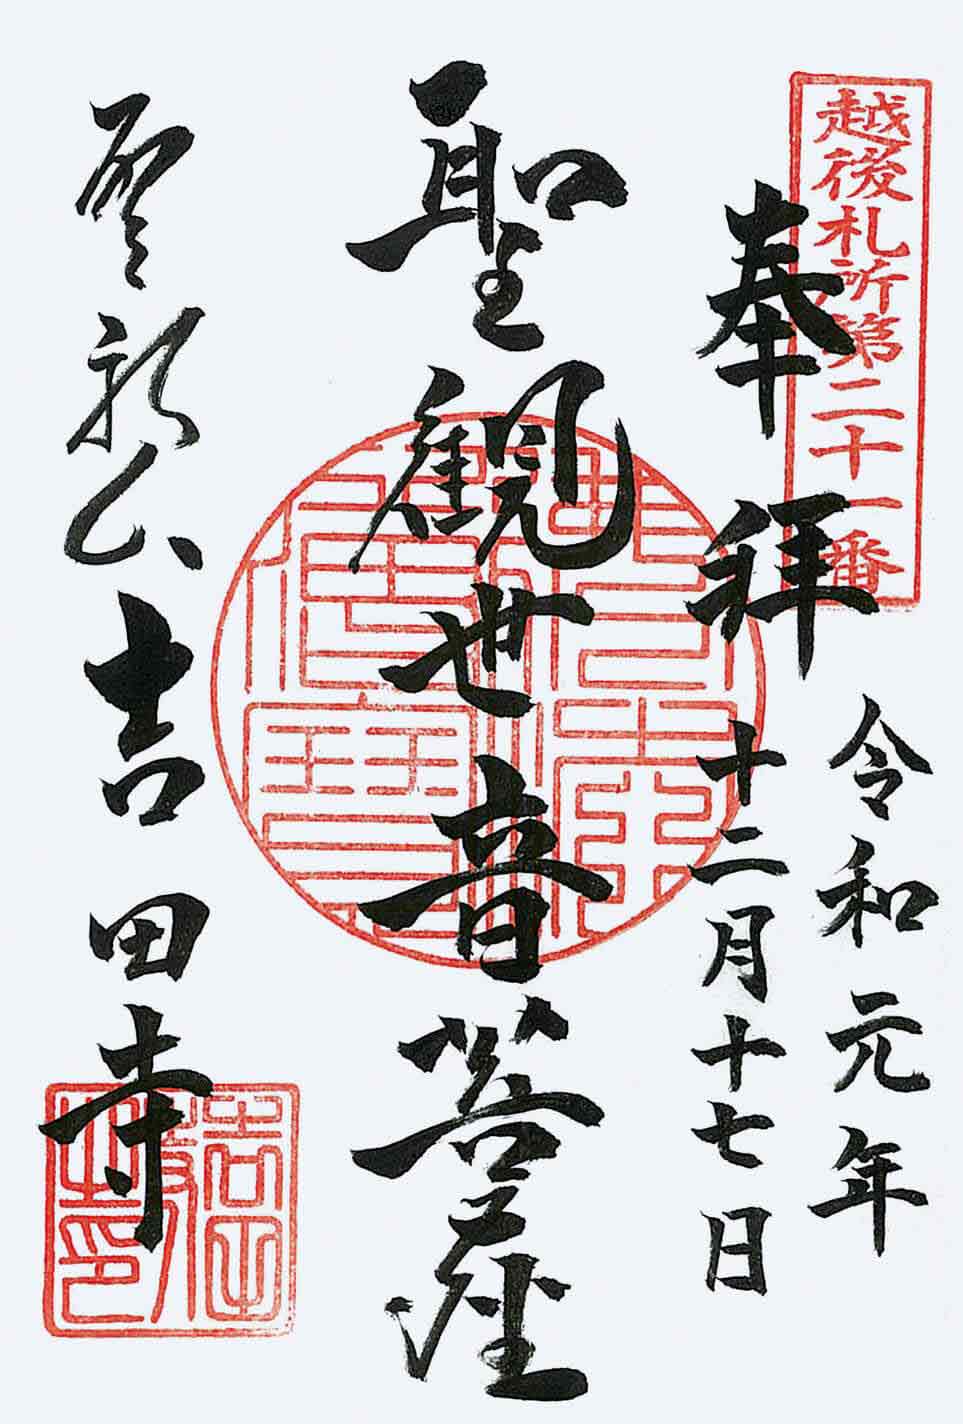 越後札所第二十一番
奉拝
令和元年
十二月十七日
聖観世音菩薩
吉田寺